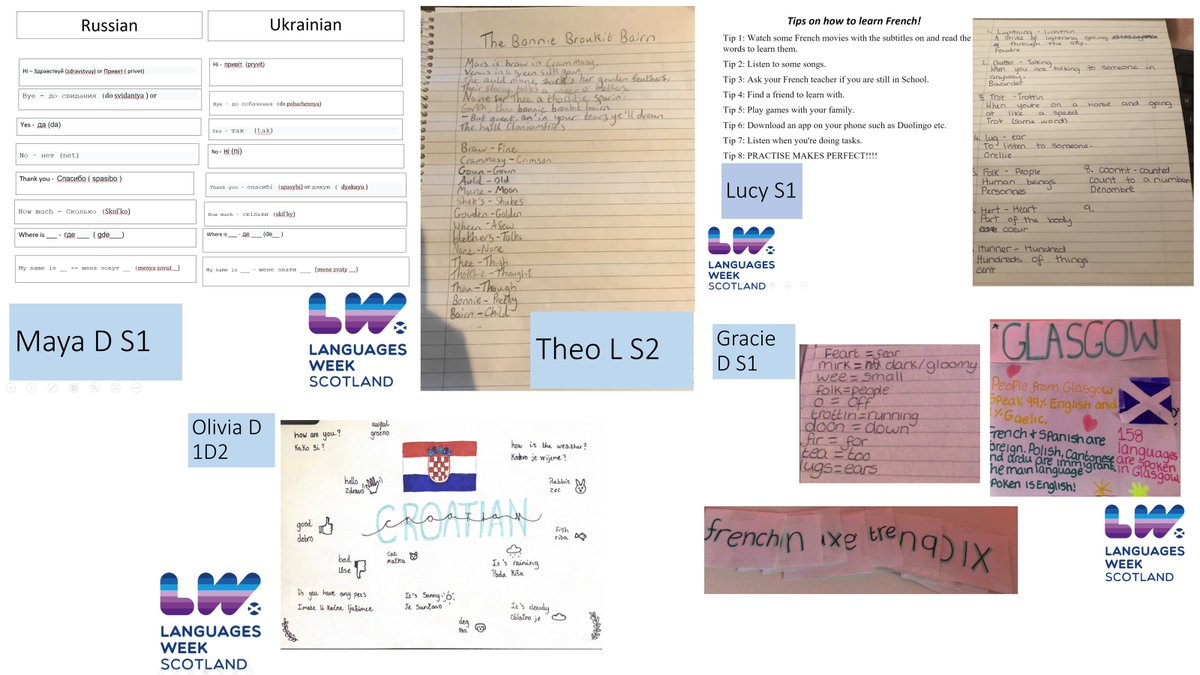 Russian
Hi – Здравствуй (zdravstvuy) or Привет ( privet)
Bye – до свидания (do svidaniya ) or
Yes – да (da)
No – нет (net)
Thank you - Спасибо ( spasibo )
How much – Сколько (Skol'ko)
Where is ___ - где ___ ( gde___)
My name is __ -- меня зовут __ (menya zovut _)
Ukrainian
Hi - привіт (pryvit)
Bye – до побачення (do pobachennya)
Yes – так (tak)
No - Ні (ni)
Thank you – спасибі (spasybi) or дякую ( dyakuyu )
How much – скільки (skil'ky)
Where is ___ - де ___ (de___ )
My name is ___ – мене звати ___ (mene zvaty __)
Maya D S1
LANGUAGES
WEEK
SCOTLAND
The Bonnie Broukit Bairn
Mars is braw in Crammasy,
Venus in a green silk goun,
The auld mune shak's her gowden feathers,
Their starry talks a wheen o' blethers,
Nane for thee a thochtie sparin'
Earth, thou bonnie broukit bairn
- But greet, an' in your tears ye'll droun
The haill clanjamfrie
Braw - Fine
Crammasy - Crimson
Goun - Gown
Auld - Old
Mune - Moon
Shak's - Shakes
Gowden - Golden
Wheen - A few
blethers - Talks
Nane - None
Thee - Thigh
Thochtie - Thought
Thou - Though
Bonnie - Pretty
Bairn - Child
Theo L S2
Tips on how to learn French!
Tip 1: Watch some French movies with the subtitles on and read the
words to learn them.
Tip 2: Listen to some songs.
Tip 3: Ask your French teacher if you are still in School.
Tip 4: Find a friend to learn with.
Tip 5: Play games with your family.
Tip 6: Download an app on your phone such as Duolingo etc.
Tip 7: Listen when you're doing tasks.
Tip 8: PRACTISE MAKES PERFECT!!!!
Lucy S1
LANGUAGES
WEEK
SCOTLAND
1. Lightning - lichtnin
A stroke of lightning going
through the sky.
Foudre
2. Chatter - Talking
When you are talking to someone in
anyway.
Bavarder
3. Trot - Trottin
When you're on a horse and going
at like a speed
Trot (same word)
4. Lug - ear
To listen to someone.
Oreille
Folk - People
Human beings
Personnes
8. coontit - counted
count to a number
Denombre
Hert - Heart
Part of the body
coeur
9.
Hunner - Hundred
Hundreds of things
cent
Gracie
D S1
Feart = fear
mirk = dark/gloomy
wee = small
folk = people
o = off
trottin = running
doon = down
fir = for
tea = too
lugs = ears
*GLASGOW
People from Glasgow
speak 99% English and
1% Gaelic.
French + Spanish are
foreign. Polish, Cantonese
and urdu are immigrant.
The main language
spoken is English!
158
languages
are spoken
in Glasgow
LANGUAGES
WEEK
SCOTLAND
Olivia D
1D2
how are you?
Kako Si?
awful
grozno
how is the weather?
Kakvo je vrijeme?
hello
Zdravo
Rabbit
zec
CROATIAN
croatian
good
dobro
fish
riba
bad
loše
Cat
mačka
It's raining
Pada kiša
Do you have any pets
Imate li kućne ljubimce
It's Sunny
Je Sunčano
It's cloudy
Oblačno je
dog
pas
LANGUAGES
WEEK
SCOTLAND
french